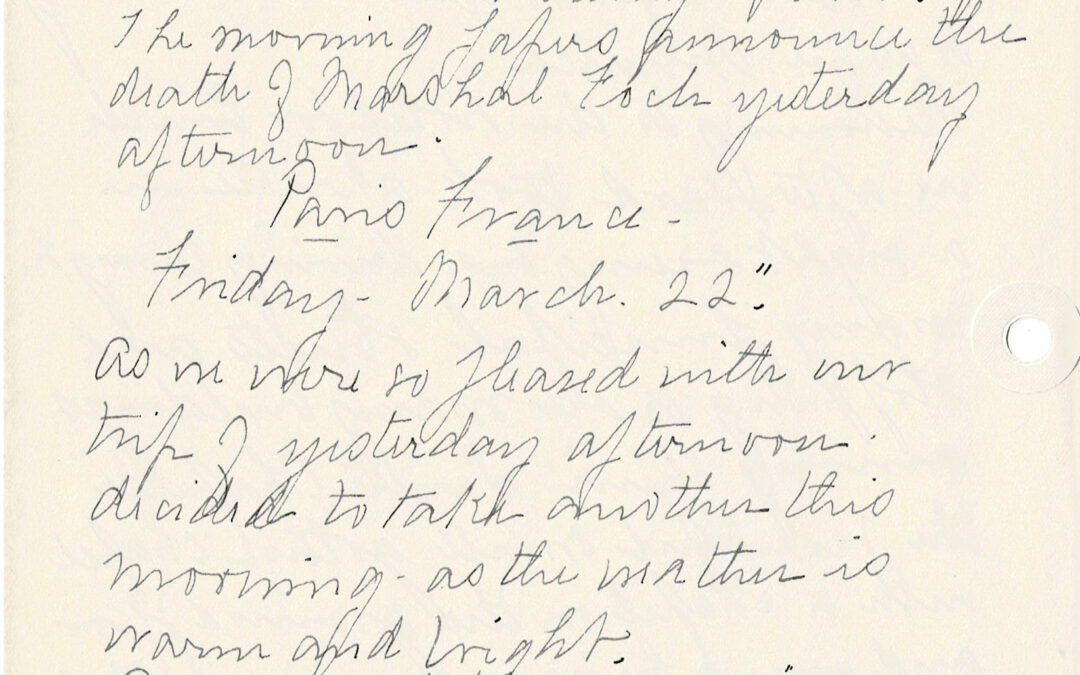 The morning papers announce the
death of Marshal Foch yesterday
afternoon.
Paris France -
Friday - March. 22".
As we were so pleased with our
trip of yesterday afternoon.
decided to take another this
morning - as the weather is
warm and bright.